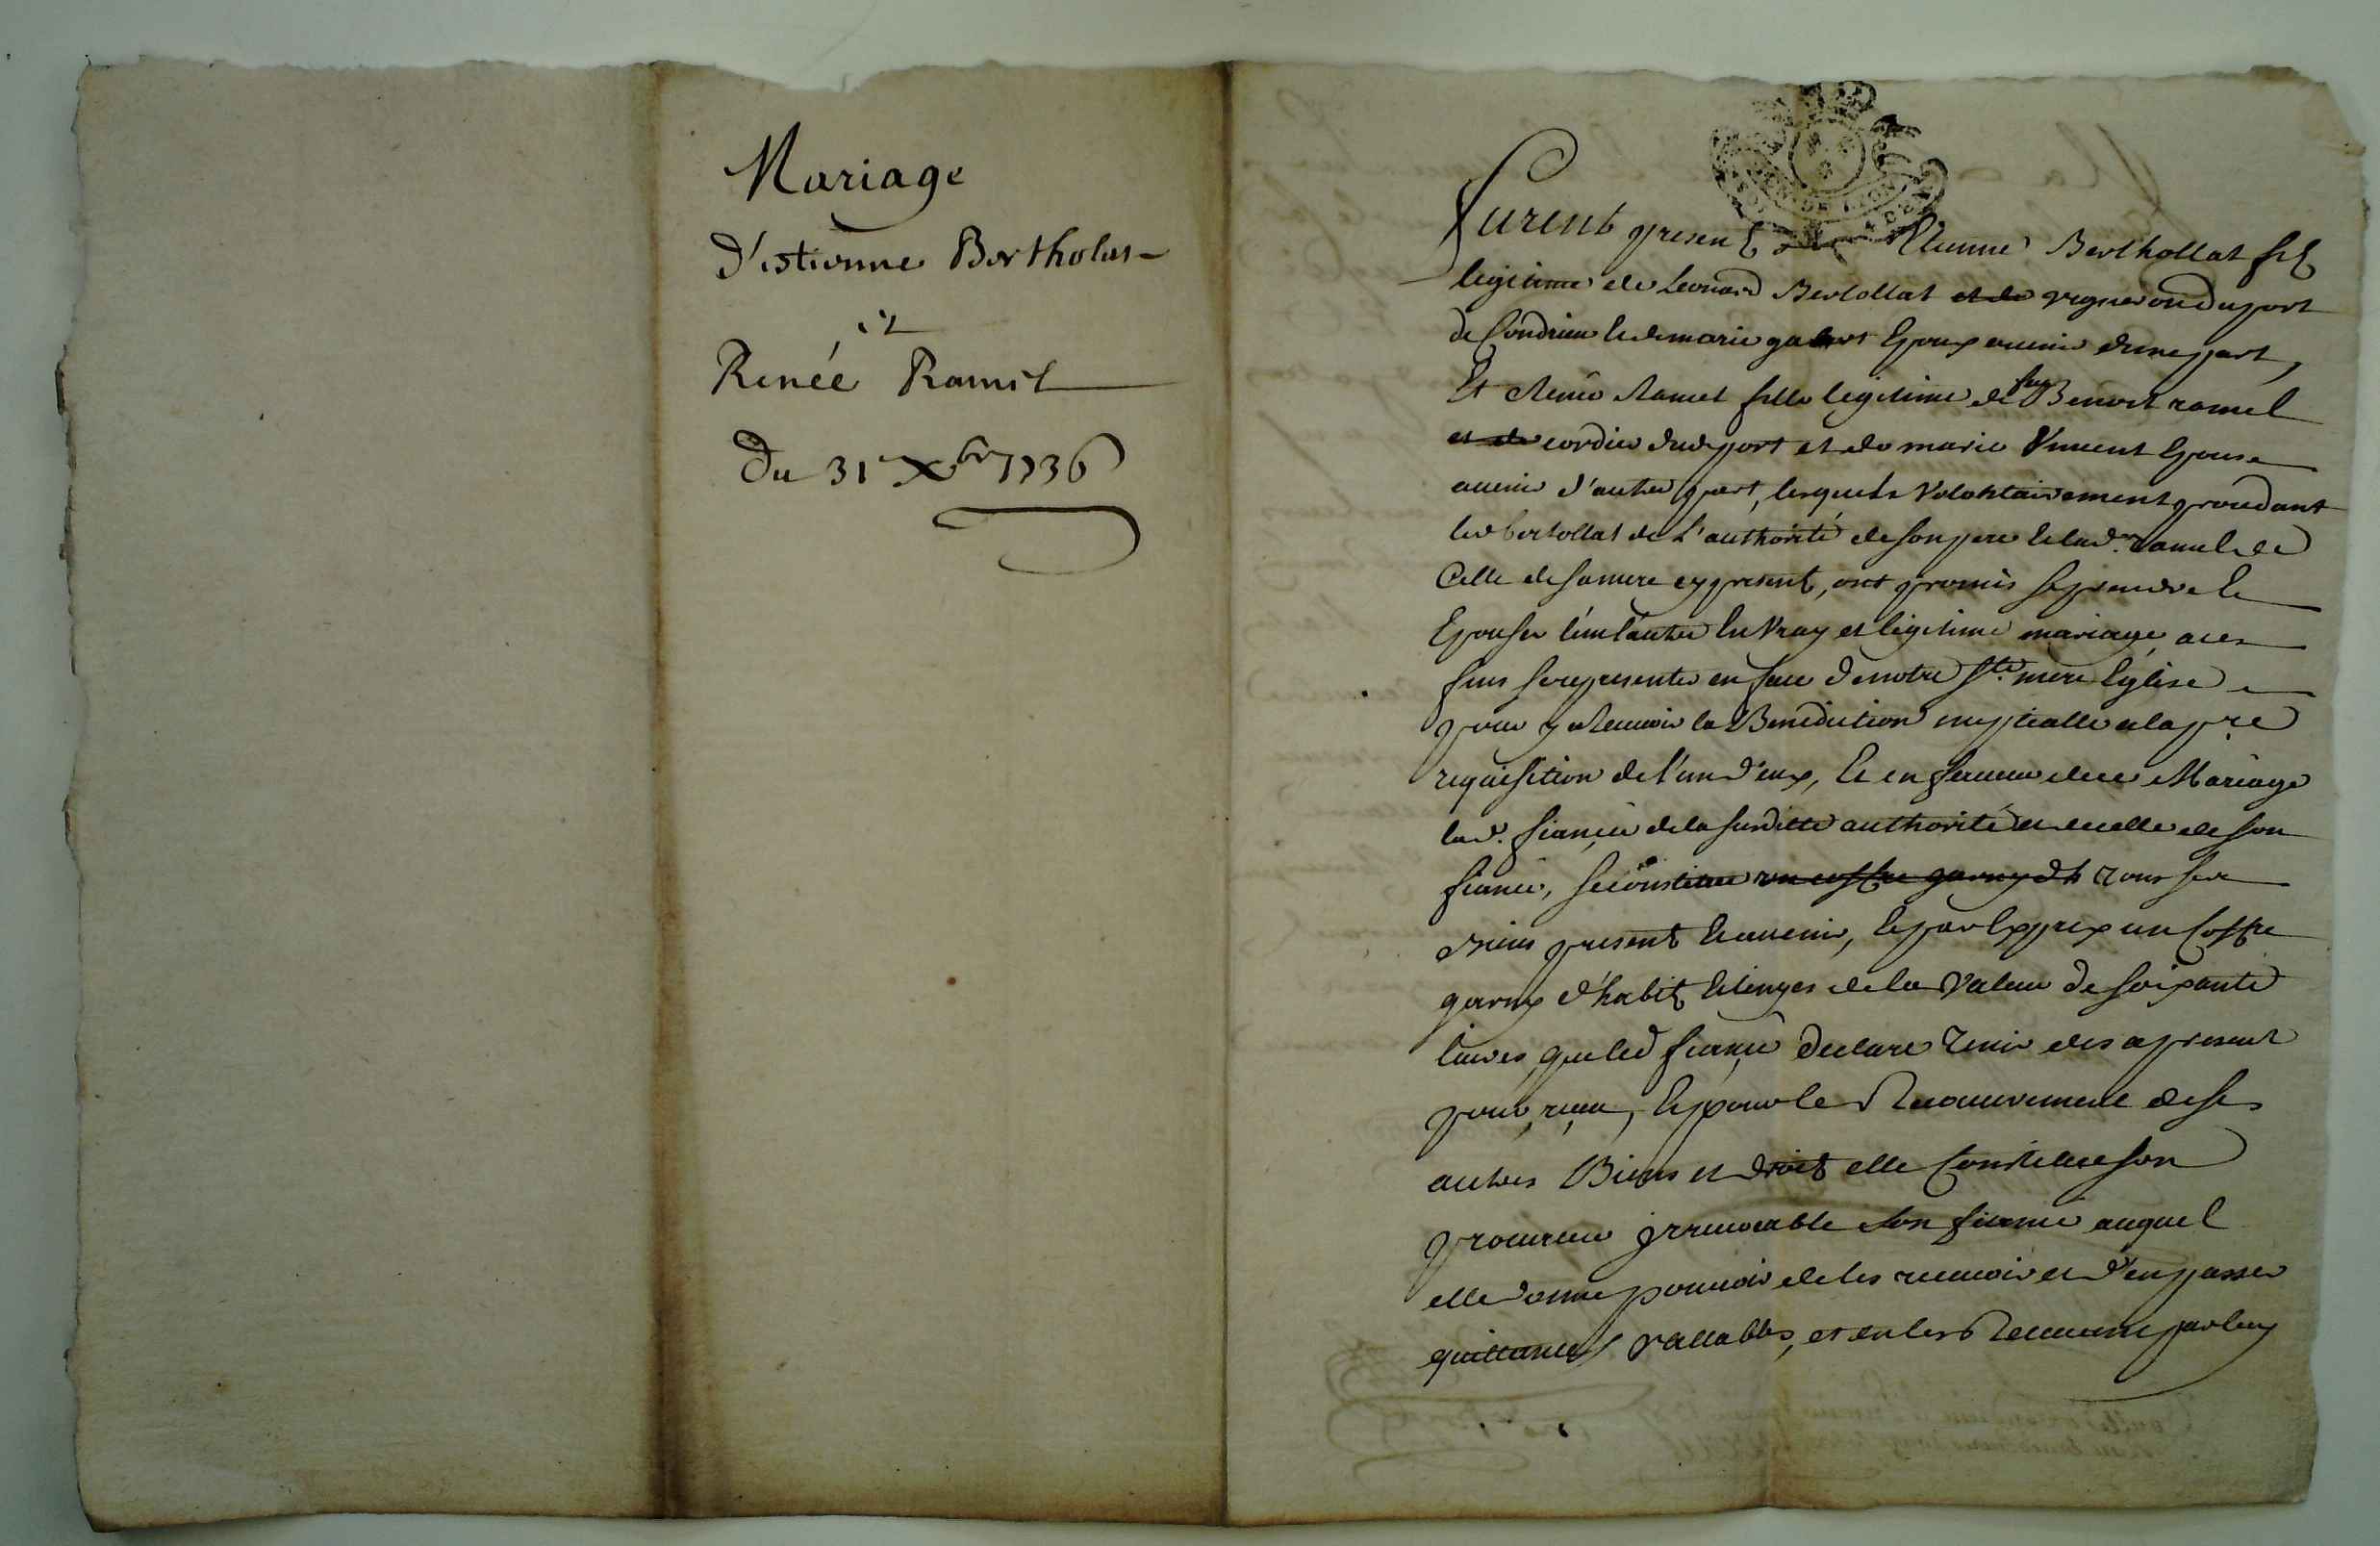 Mariage
D'estienne Bertholat
et
Renée Ramel
Du 31e Xbre 1736
GEN DE LION
Furent present Etienne Berthollat fils
legitime de Leonard Bertollat et de vigneron du port
de Condrieu et de marie Epoux avenir d'une part,
Et Renée Ramel fille legitime de feu Benoit ramel
et de cordier dud port et de marie Vincent Epouse
avenir d'autre part, lesquels volontairement procedant
led bertollat de L'authorité de son pere et lad. ramel de
Celle de sa mere cy present, ont promis se prendre et
Epouser l'un l'autre En vray et legitime mariage, a ces
fins se representer en face de notre Ste. mere Eglise
pour y recevoir la Benediction nuptialle a la pre
requisition de l'un d'eux, Et en faveur de ce Mariage
lad. fiancée de la susditte authorité et de celle de son
fiancé, se constitue un coffre garny d'h tous ses
Biens present et avenir, et par Exprex un Coffre
garny d'habits et linges de la Valeur de soixante
livres, que led fiancé declare tenir des a present
pour reçu, Et pour le Recouvrement de ses
autres Biens et droits elle Constitue son
procureur irrevocable son fiancé auquel
elle donne pouvoir de les recevoir et d'en passer
quittances vallables, et en les Recevant par luy